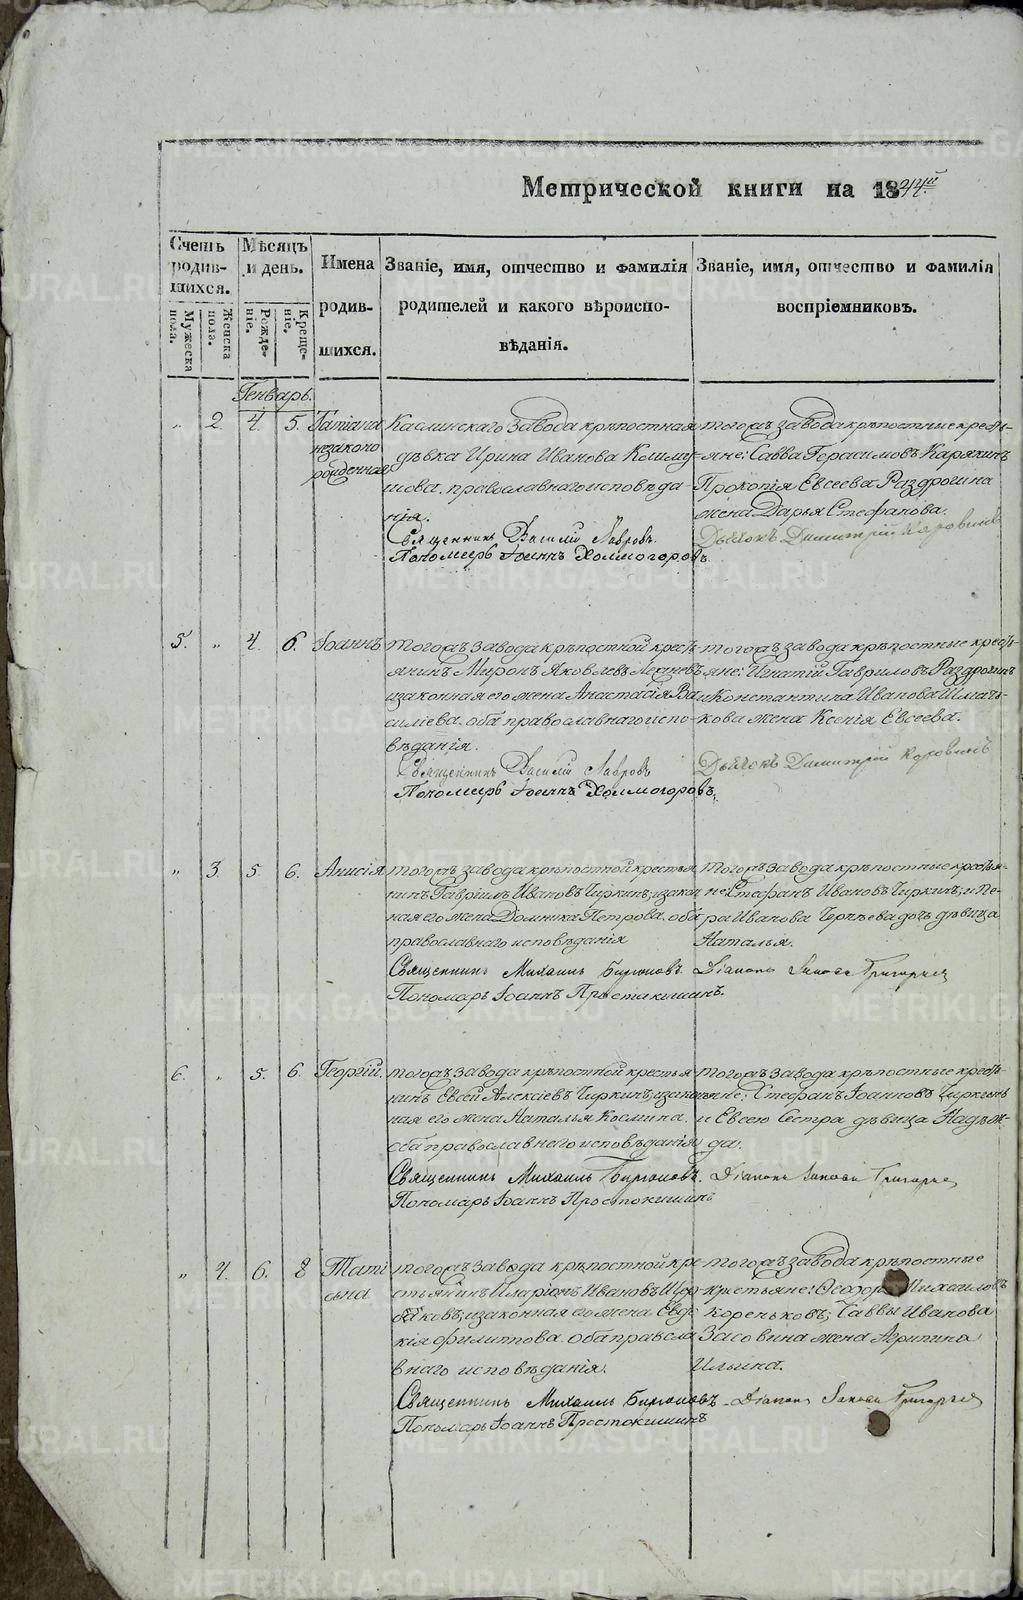 Метрической книги на 1844й
Счетъ родив-шихся.
Мужеска пола.
Женска пола.
Мѣсяцъ и день.
Рожде-ніе.
Креще-ніе.
Имена родив-шихся.
Званіе, имя, отчество и фамилія
родителей и какого вѣроиспо-
вѣданія.
Званіе, имя, отчество и фамилія
воспріемниковъ.
Генварь.
„ 2. 4. 5.
Татіана
незаконо
рожденная
Каслинскаго завода крѣпостная
дѣвка Ирина Иванова
православнаго исповѣда
нія.
Священникъ Василій Лавровъ.
Пономарь Іоаннъ Холмогоровъ.
тогожъ завода крѣпостные кресть-
яне: Савва Герасимовъ Карякинъ
Прокопія Евсеева Раздрогина
жена Дарья Стефанова.
Дьячокъ Димитрій Коровинъ
5. „ 4. 6.
Іоаннъ
тогожъ завода крѣпостной кресть-
янинъ Миронъ Яковлевъ
изаконная его жена Анастасія Ва
силіева, оба православнаго испо-
вѣданія.
Священникъ Василій Лавровъ
Пономарь Іоаннъ Холмогоровъ.
тогожъ завода крѣпостные кресть-
яне: Игнатій Гавриловъ Раздрогинъ
иКонстантина Иванова
кова жена Ксенія Евсеева.
Дьячокъ Димитрій Коровинъ
„ 3. 5. 6.
Анисія
тогожъ завода крѣпостной крестья
нинъ Гавріилъ Ивановъ Чиркинъ, изакон
ная его жена Домника Петрова, оба
православнаго исповѣданія
Священникъ Михаилъ Бирюковъ.
Пономарь Іоаннъ Простокишинъ.
тогожъ завода крѣпостные крестья
не: Стефанъ Ивановъ Чиркинъ, и Пе-
ра Иванова дочь дѣвица
Наталья.
Діаконъ Іаковъ Григорьев
6. „ 5. 6.
Георгій.
тогожъ завода крѣпостной крестья
нинъ Евсей Алексіевъ Чиркинъ, изакон
ная его жена Наталья Космина,
оба православнаго исповѣданія
Священникъ Михаилъ Бирюковъ.
Пономарь Іоаннъ Простокишинъ
тогожъ завода крѣпостные кресть-
яне: Стефанъ Іоанновъ Чиркинъ
и Евсею Сестра дѣвица Надѣж-
да.
Діаконъ Іаковъ Григорьев
„ 4. 6. 8
Таті
ана
тогожъ завода крѣпостной кре
стьянинъ Иларіонъ Ивановъ
изаконная его жена Евдо
кія Филиппова, оба правосла
внаго исповѣданія.
Священникъ Михаилъ Бирюковъ
Пономарь Іоаннъ Простокишинъ
тогожъ завода крѣпостные
крестьяне: Ѳеодоръ Михаиловъ
Кореньковъ, Саввы Иванова
Засовина жена Агрипина
Ильина.
Діаконъ Іаковъ Григорьев
METRIKI.GASO-URAL.RU